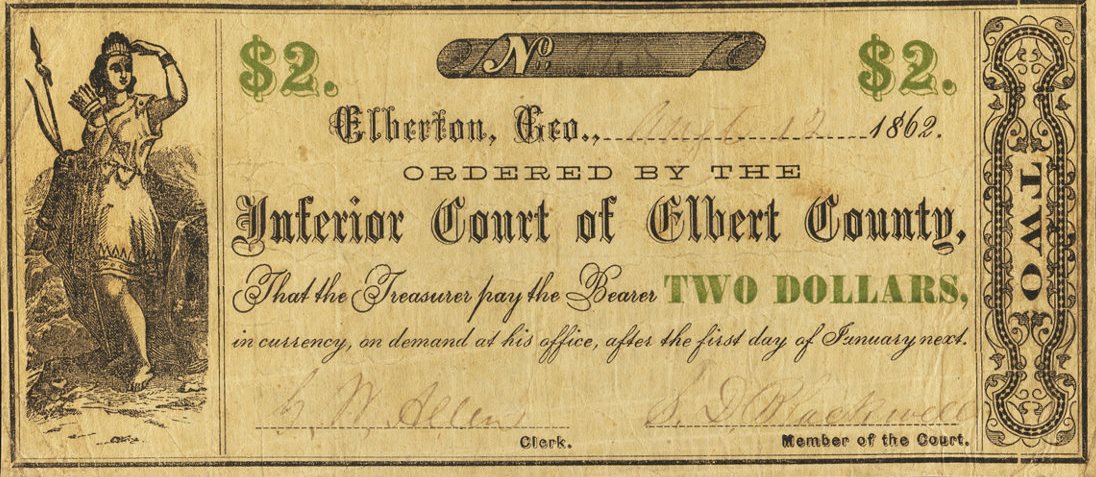 $2. No. $2.
Elberton, Geo., Augt 12 1862.
ORDERED BY THE
Inferior Court of Elbert County,
That the Treasurer pay the Bearer TWO DOLLARS,
in currency, on demand at his office, after the first day of January next.
G. W. Allen S. D. Blackwell
Clerk. Member of the Court.
TWO